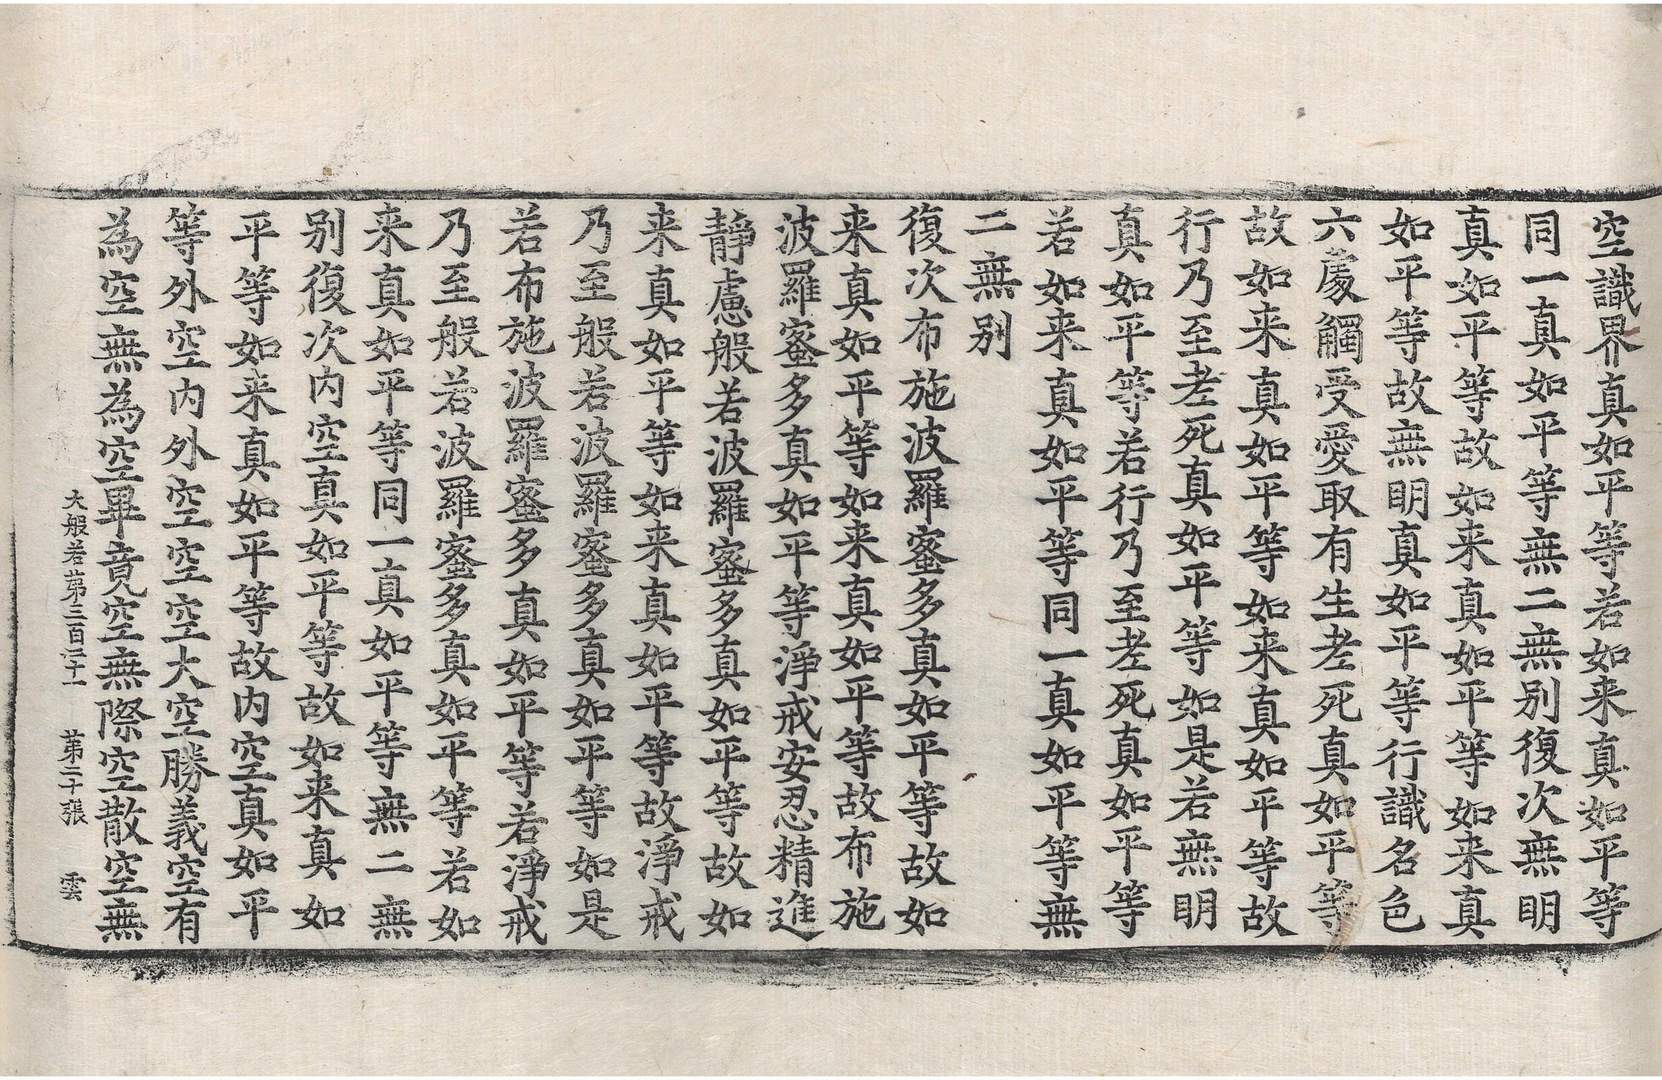 空識界真如平等若如来真如平等
同一真如平等無二無别復次無明
真如平等故如来真如平等如来真
如平等故無明真如平等行識名色
六處觸受愛取有生老死真如平等
故如来真如平等如来真如平等故
行乃至老死真如平等如是若無明
真如平等若行乃至老死真如平等
若如来真如平等同一真如平等無
二無别
復次布施波羅蜜多真如平等故如
来真如平等如来真如平等故布施
波羅蜜多真如平等淨戒安忍精進
靜慮般若波羅蜜多真如平等故如
来真如平等如来真如平等故淨戒
乃至般若波羅蜜多真如平等如是
若布施波羅蜜多真如平等若淨戒
乃至般若波羅蜜多真如平等若如
来真如平等同一真如平等無二無
别復次内空真如平等故如来真如
平等如来真如平等故内空真如平
等外空内外空空空大空勝義空有
為空無為空畢竟空無際空散空無
大般若第三百二十一 第二十張 雲